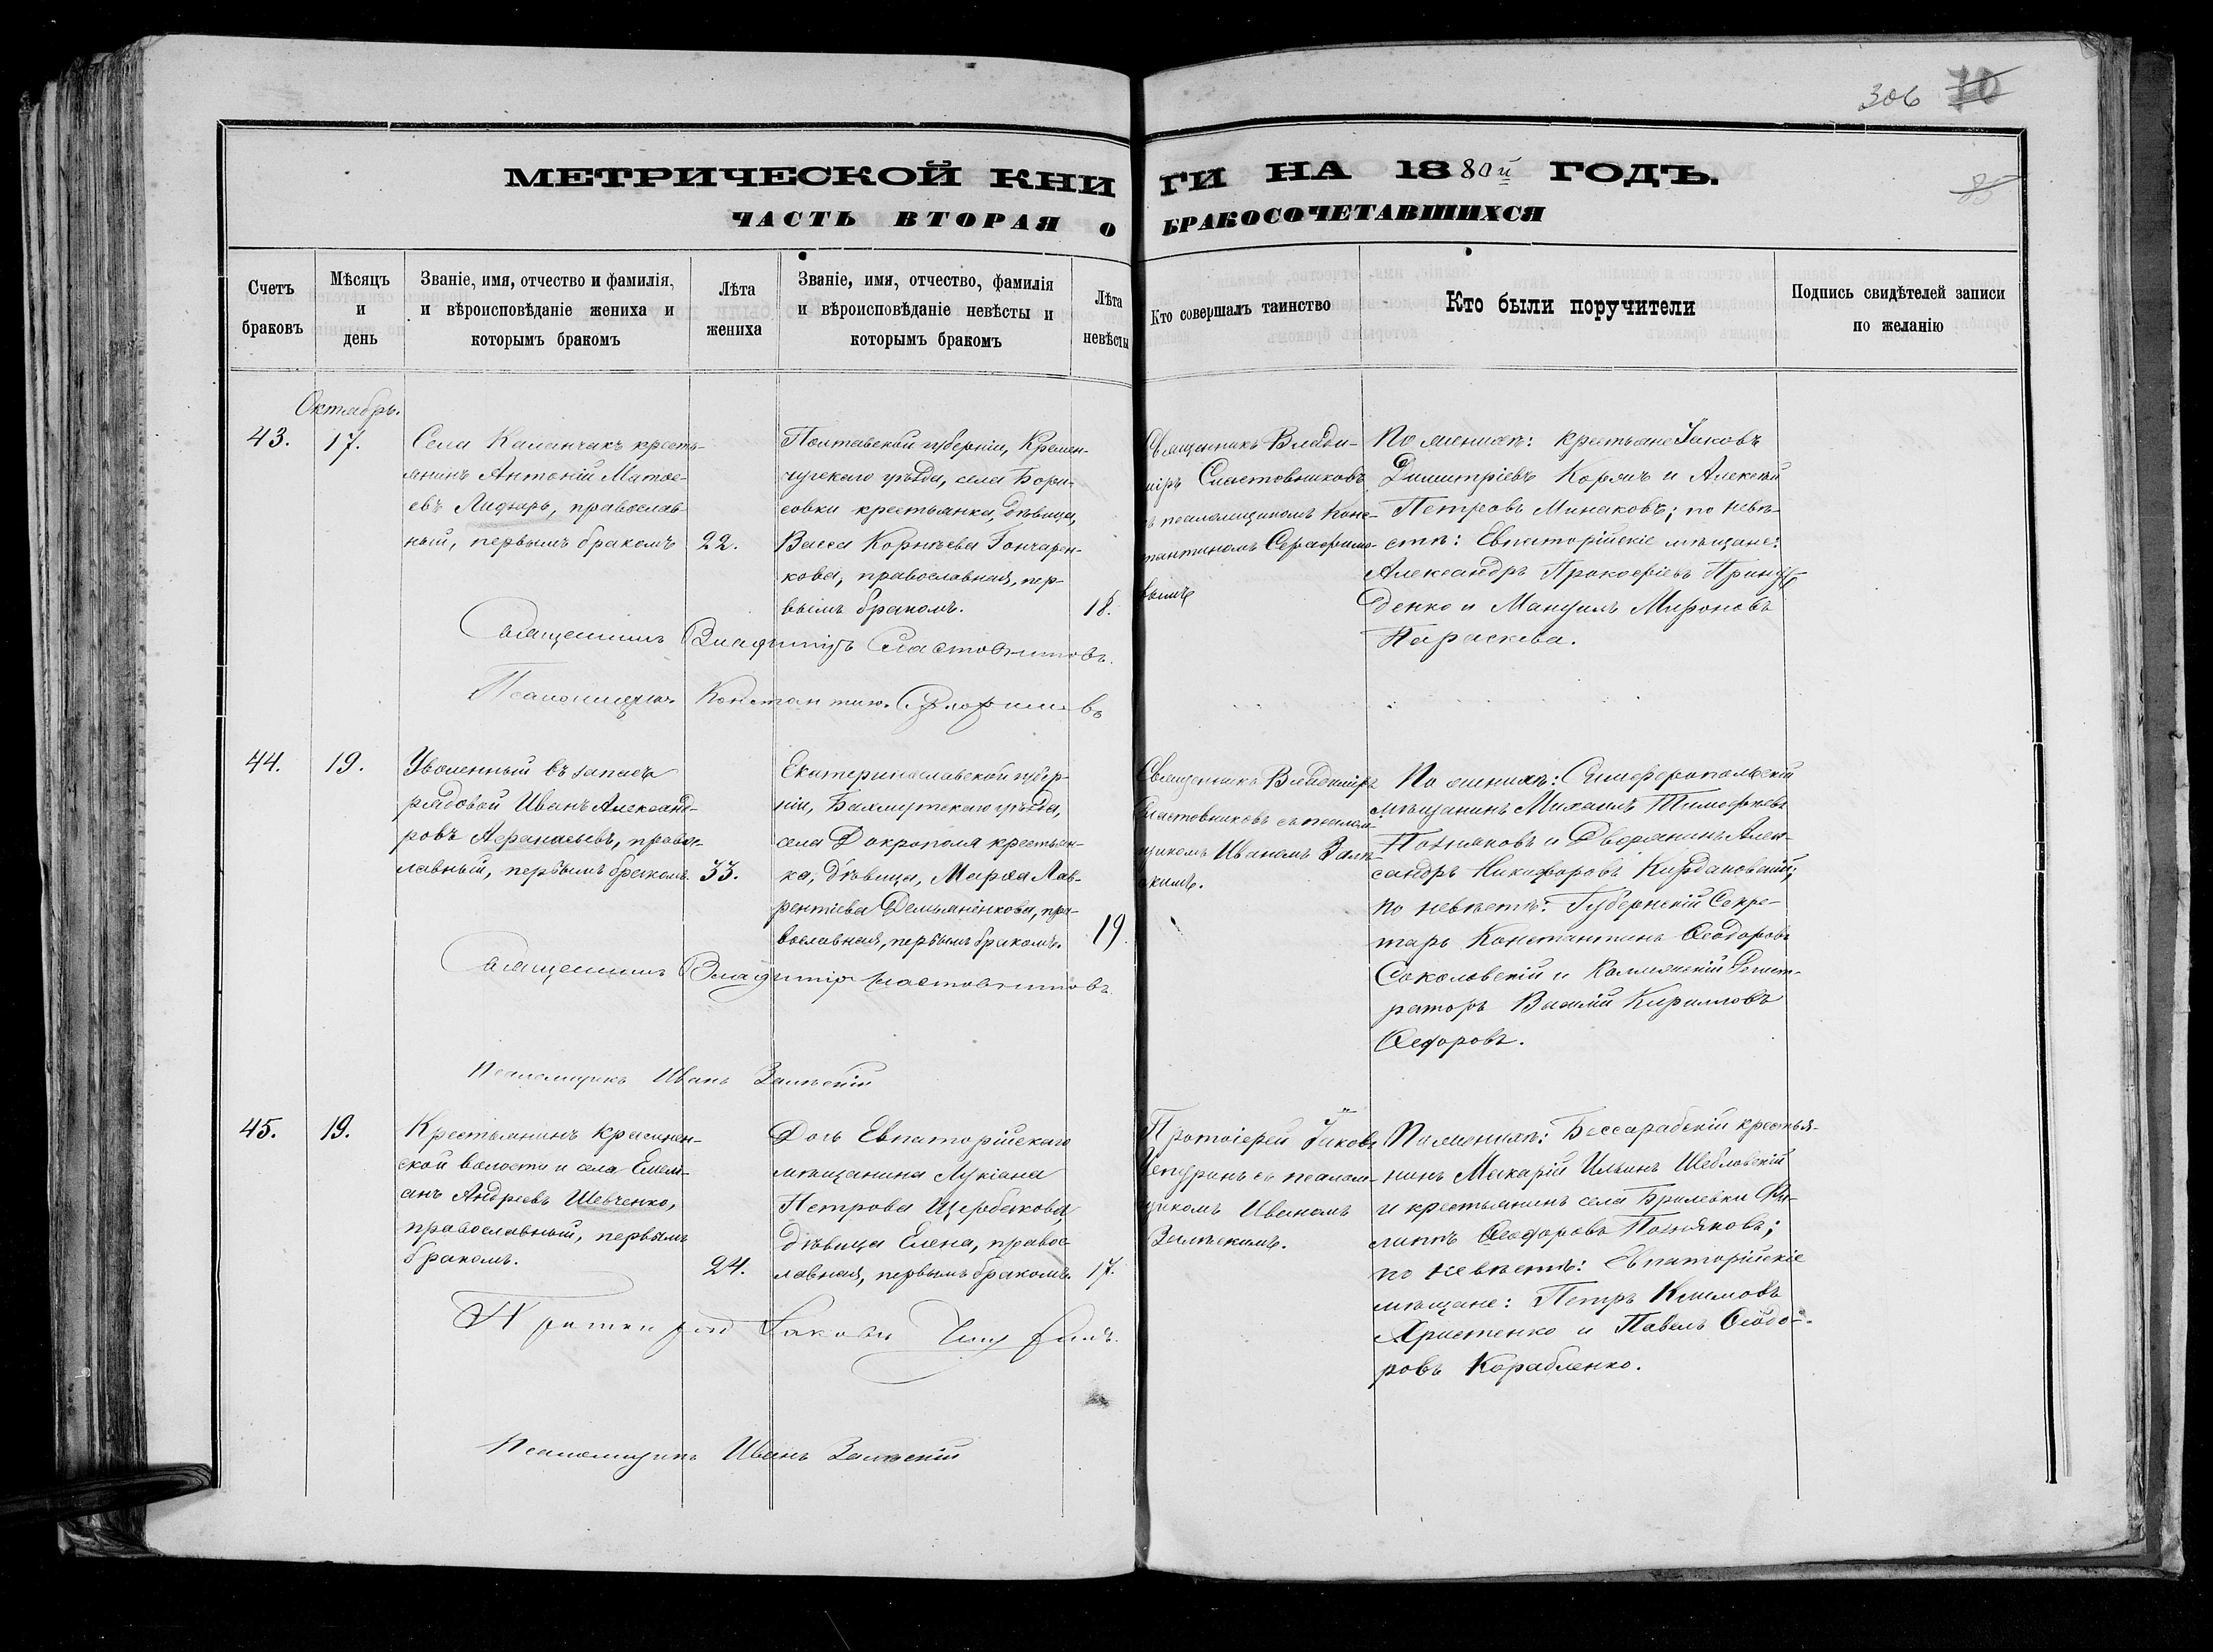 306 70
МЕТРИЧЕСКОЙ КНИГИ НА 1880й ГОДЪ.
85
ЧАСТЬ ВТОРАЯ О БРАКОСОЧЕТАВШИХСЯ
Счетъ браковъ
Мѣсяцъ и день
Званіе, имя, отчество и фамилія,
и вѣроисповѣданіе жениха и
которымъ бракомъ
Лѣта жениха
Званіе, имя, отчество, фамилія
и вѣроисповѣданіе невѣсты и
которымъ бракомъ
Лѣта невѣсты
Кто совершалъ таинство
Кто были поручители
Подпись свидѣтелей записи
по желанію
Октябрь.
43.
17.
Села Каланчакъ кресть-
янинъ Антоній Матѳе-
евъ Лифарь, православ-
ный, первымъ бракомъ
22.
Полтавской губерніи, Кремен-
чугскаго уѣзда, села Бори-
совки крестьянка, дѣвица,
Васса Корнѣева Гончарен-
кова, православная, пер-
вымъ бракомъ.
18.
Священникъ Влади-
міръ Сластовниковъ
съ псаломщикомъ Конс-
тантиномъ Серафимо-
вымъ
По женихѣ: крестьяне Іаковъ
Димитріевъ Корячъ и Алексѣй
Петровъ Минаковъ; по невѣ-
стѣ: Евпаторійскіе мѣщане:
Александръ Прокофіевъ
денко и Мануилъ Мироновъ
Параскева.
Священникъ Владиміръ Сластовниковъ.
Псаломщикъ Константинъ Серафимовъ
44.
19.
Уволенный въ запасъ
рядовой Иванъ Александ-
ровъ Аѳанасьевъ, правос-
лавный, первымъ бракомъ.
33.
Екатеринославской губер-
ніи, Бахмутскаго уѣзда,
села Доброполя крестьян-
ка, дѣвица, Марѳа Лав-
рентіева Демьяненкова, пра-
вославная, первымъ бракомъ.
19.
Священникъ Владиміръ
Сластовниковъ съ псалом-
щикомъ Иваномъ Залѣ-
скимъ.
По женихѣ: Симферопольскій
мѣщанинъ Михаилъ Тимофѣевъ
Позняковъ и Дворянинъ Алек-
сандръ Никифоровъ Кирдановскій;
по невѣстѣ: Губернскій Секре-
тарь Константинъ Ѳеодоровъ
Соколовскій и Коллежскій Регист-
раторъ Василій Кирилловъ
Ѳедоровъ.
Священникъ Владиміръ Сластовниковъ.
Псаломщикъ Иванъ Залѣскій
45.
19.
Крестьянинъ
ской волости и села Емель-
янъ Андреевъ Шевченко,
православный, первымъ
бракомъ.
24.
Дочь Евпаторійскаго
мѣщанина Лукіана
Петрова Щербакова,
дѣвица Елена, правос-
лавная, первымъ бракомъ.
17.
Протоіерей Іаковъ
Чепуринъ съ псалом-
щикомъ Иваномъ
Залѣскимъ.
По женихѣ: Бессарабскій кресть я-
нинъ Макарій Ильинъ Шебловскій
и крестьянинъ села Брилевки Фи-
липпъ Ѳеодоровъ Позняковъ;
по невѣстѣ: Евпаторійскіе
мѣщане: Петръ Климовъ
Христенко и Павелъ Ѳеодо-
ровъ Корабленко.
Протоіерей Іаковъ Чепуринъ.
Псаломщикъ Иванъ Залѣскій